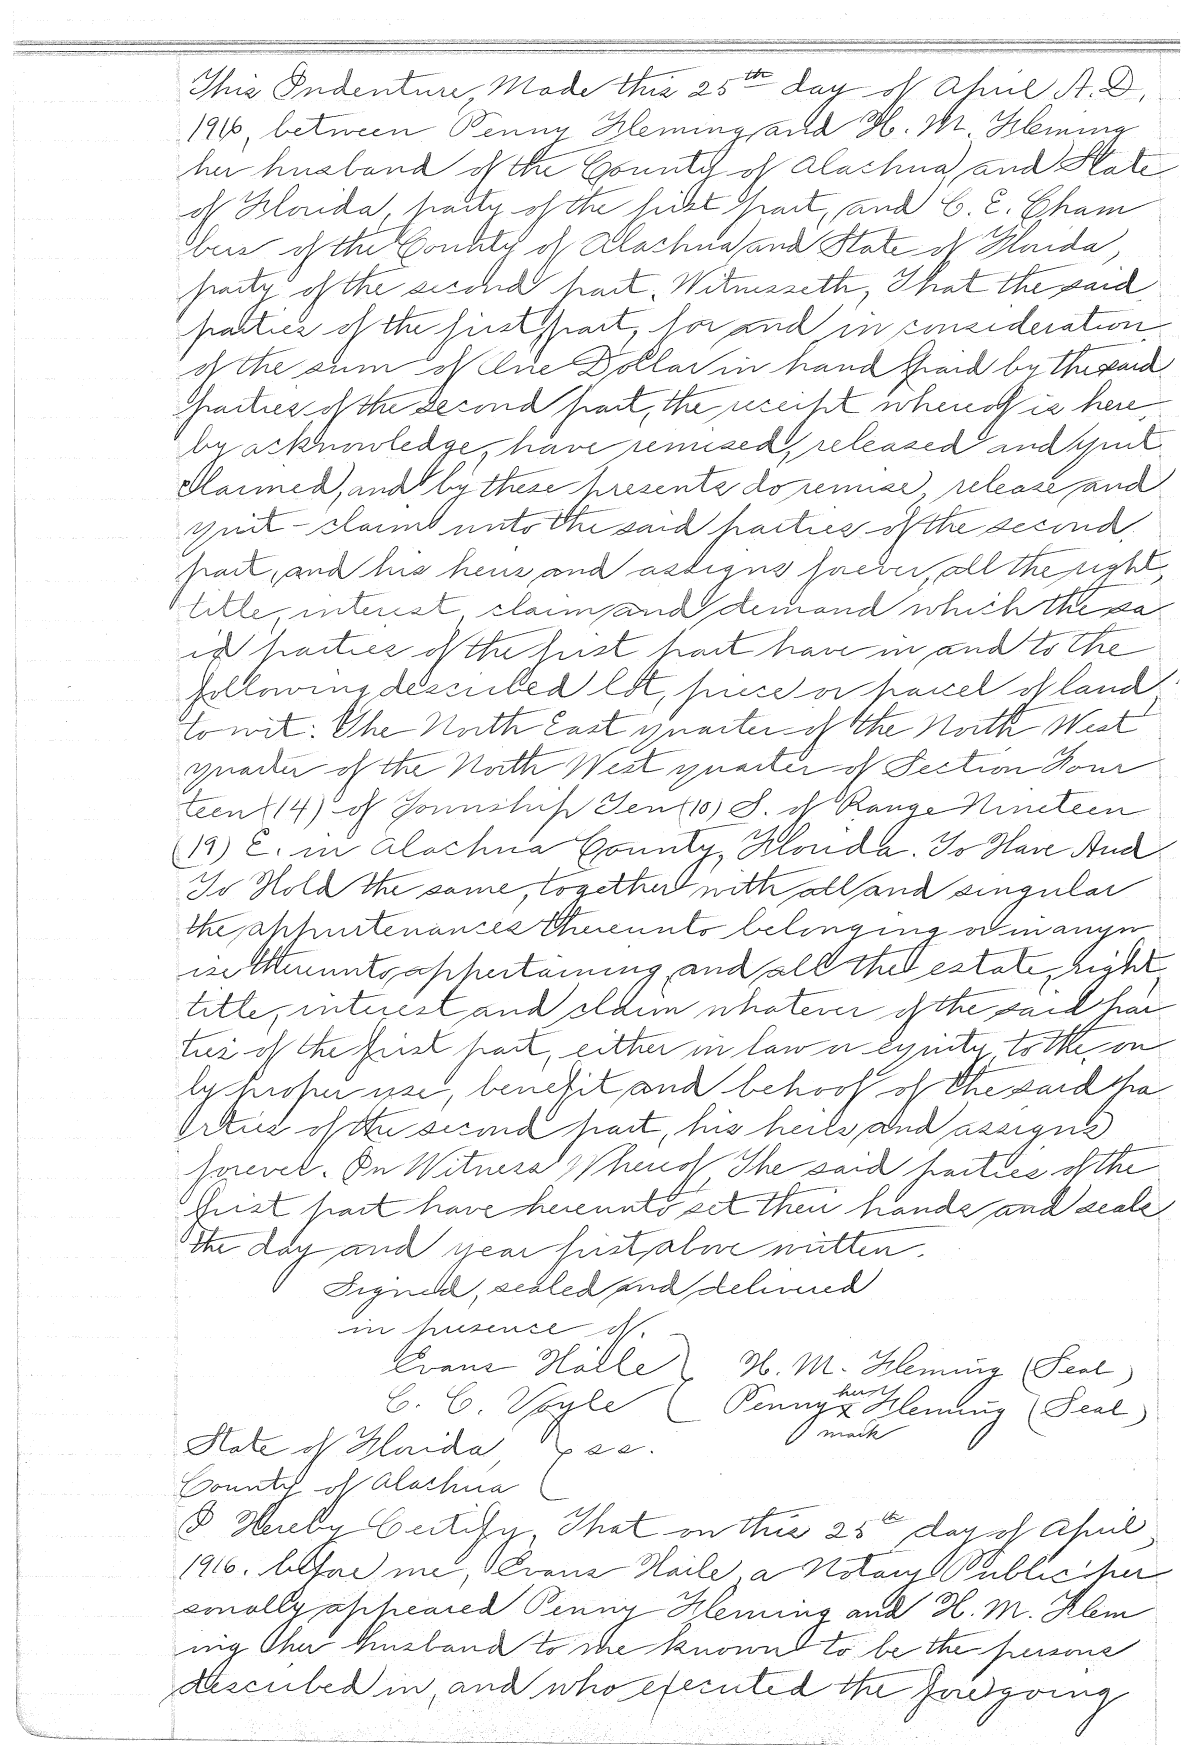 This Indenture, Made this 25th day of April A.D.
1916, between Penny Fleming and H. M. Fleming
her husband of the County of Alachua, and State
of Florida, party of the first part, and C. E. Cham
bers of the County of Alachua and State of Florida,
party of the second part. Witnesseth, That the said
parties of the first part, for and in consideration
of the sum of One Dollar in hand paid by the said
parties of the second part, the receipt whereof is here
by acknowledge, have remised, released and quit
claimed, and by these presents do remise, release and
quit-claim unto the said parties of the second
part, and his heirs and assigns forever, all the right,
title, interest, claim and demand which the sa
id parties of the first part have in and to the
following described lot, piece or parcel of land,
to wit: The North East quarter of the North West
quarter of the North West quarter of Section Four
teen (14) of Township Ten (10) S. of Range Nineteen
(19) E. in Alachua County, Florida. To Have And
To Hold the same, together with all and singular
the appurtenances thereunto belonging or in anyw
ise thereunto appertaining, and all the estate, right,
title, interest and claim whatever of the said par
ties of the first part, either in law or equity, to the on
ly proper use, benefit and behoof of the said pa
rties of the second part, his heirs and assigns
forever. In Witness Whereof, The said parties of the
first part have hereunto set their hands and seals
the day and year first above written.
Signed, sealed and delivered
in presence of.
Evans Haile } H. M. Fleming (Seal)
C. C. Voyle ( Penny her x mark Fleming (Seal)
State of Florida, } s.s.
County of Alachua (
I Hereby Certify, That on this 25th day of April,
1916. before me, Evans Haile, a Notary Public per
sonally appeared Penny Fleming and H. M. Flem
ing her husband to me known to be the persons
described in, and who executed the foregoing